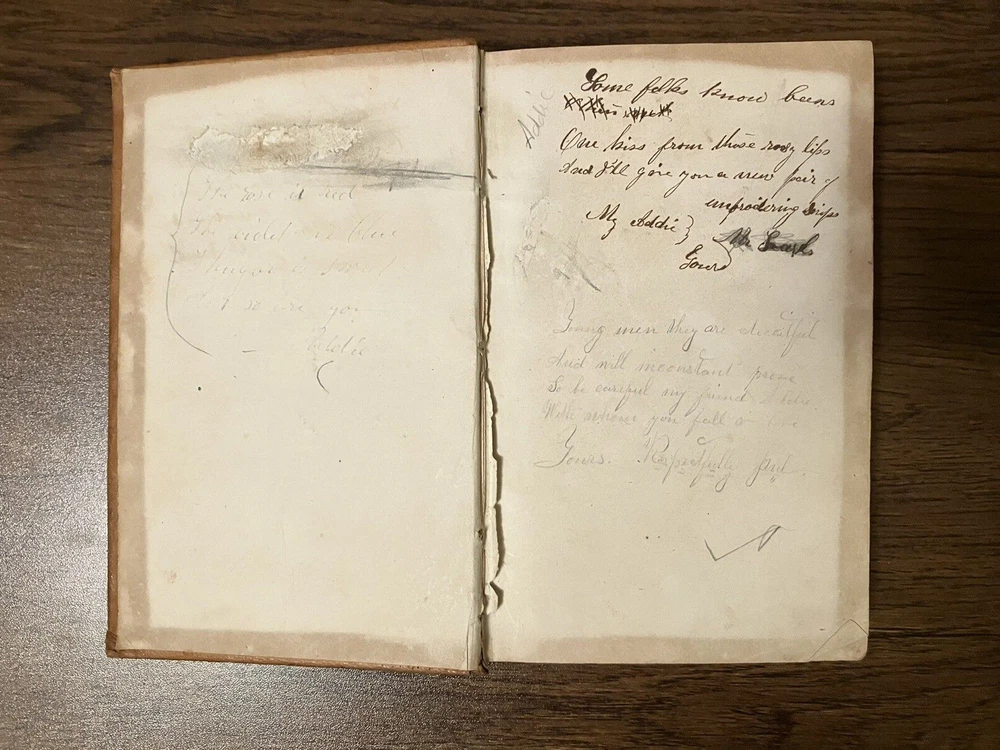 The rose is red
The violet is blue
Sugar is sweet
so are you
Addie
Addie
Some folks know beens
One kiss from those rosy lips
And I'll give you a new pair of
My Addie }
Yours
Young men they are deceitful
And will inconstant prove
So be careful my friend
With whome you fall in love
Yours. Respectfully